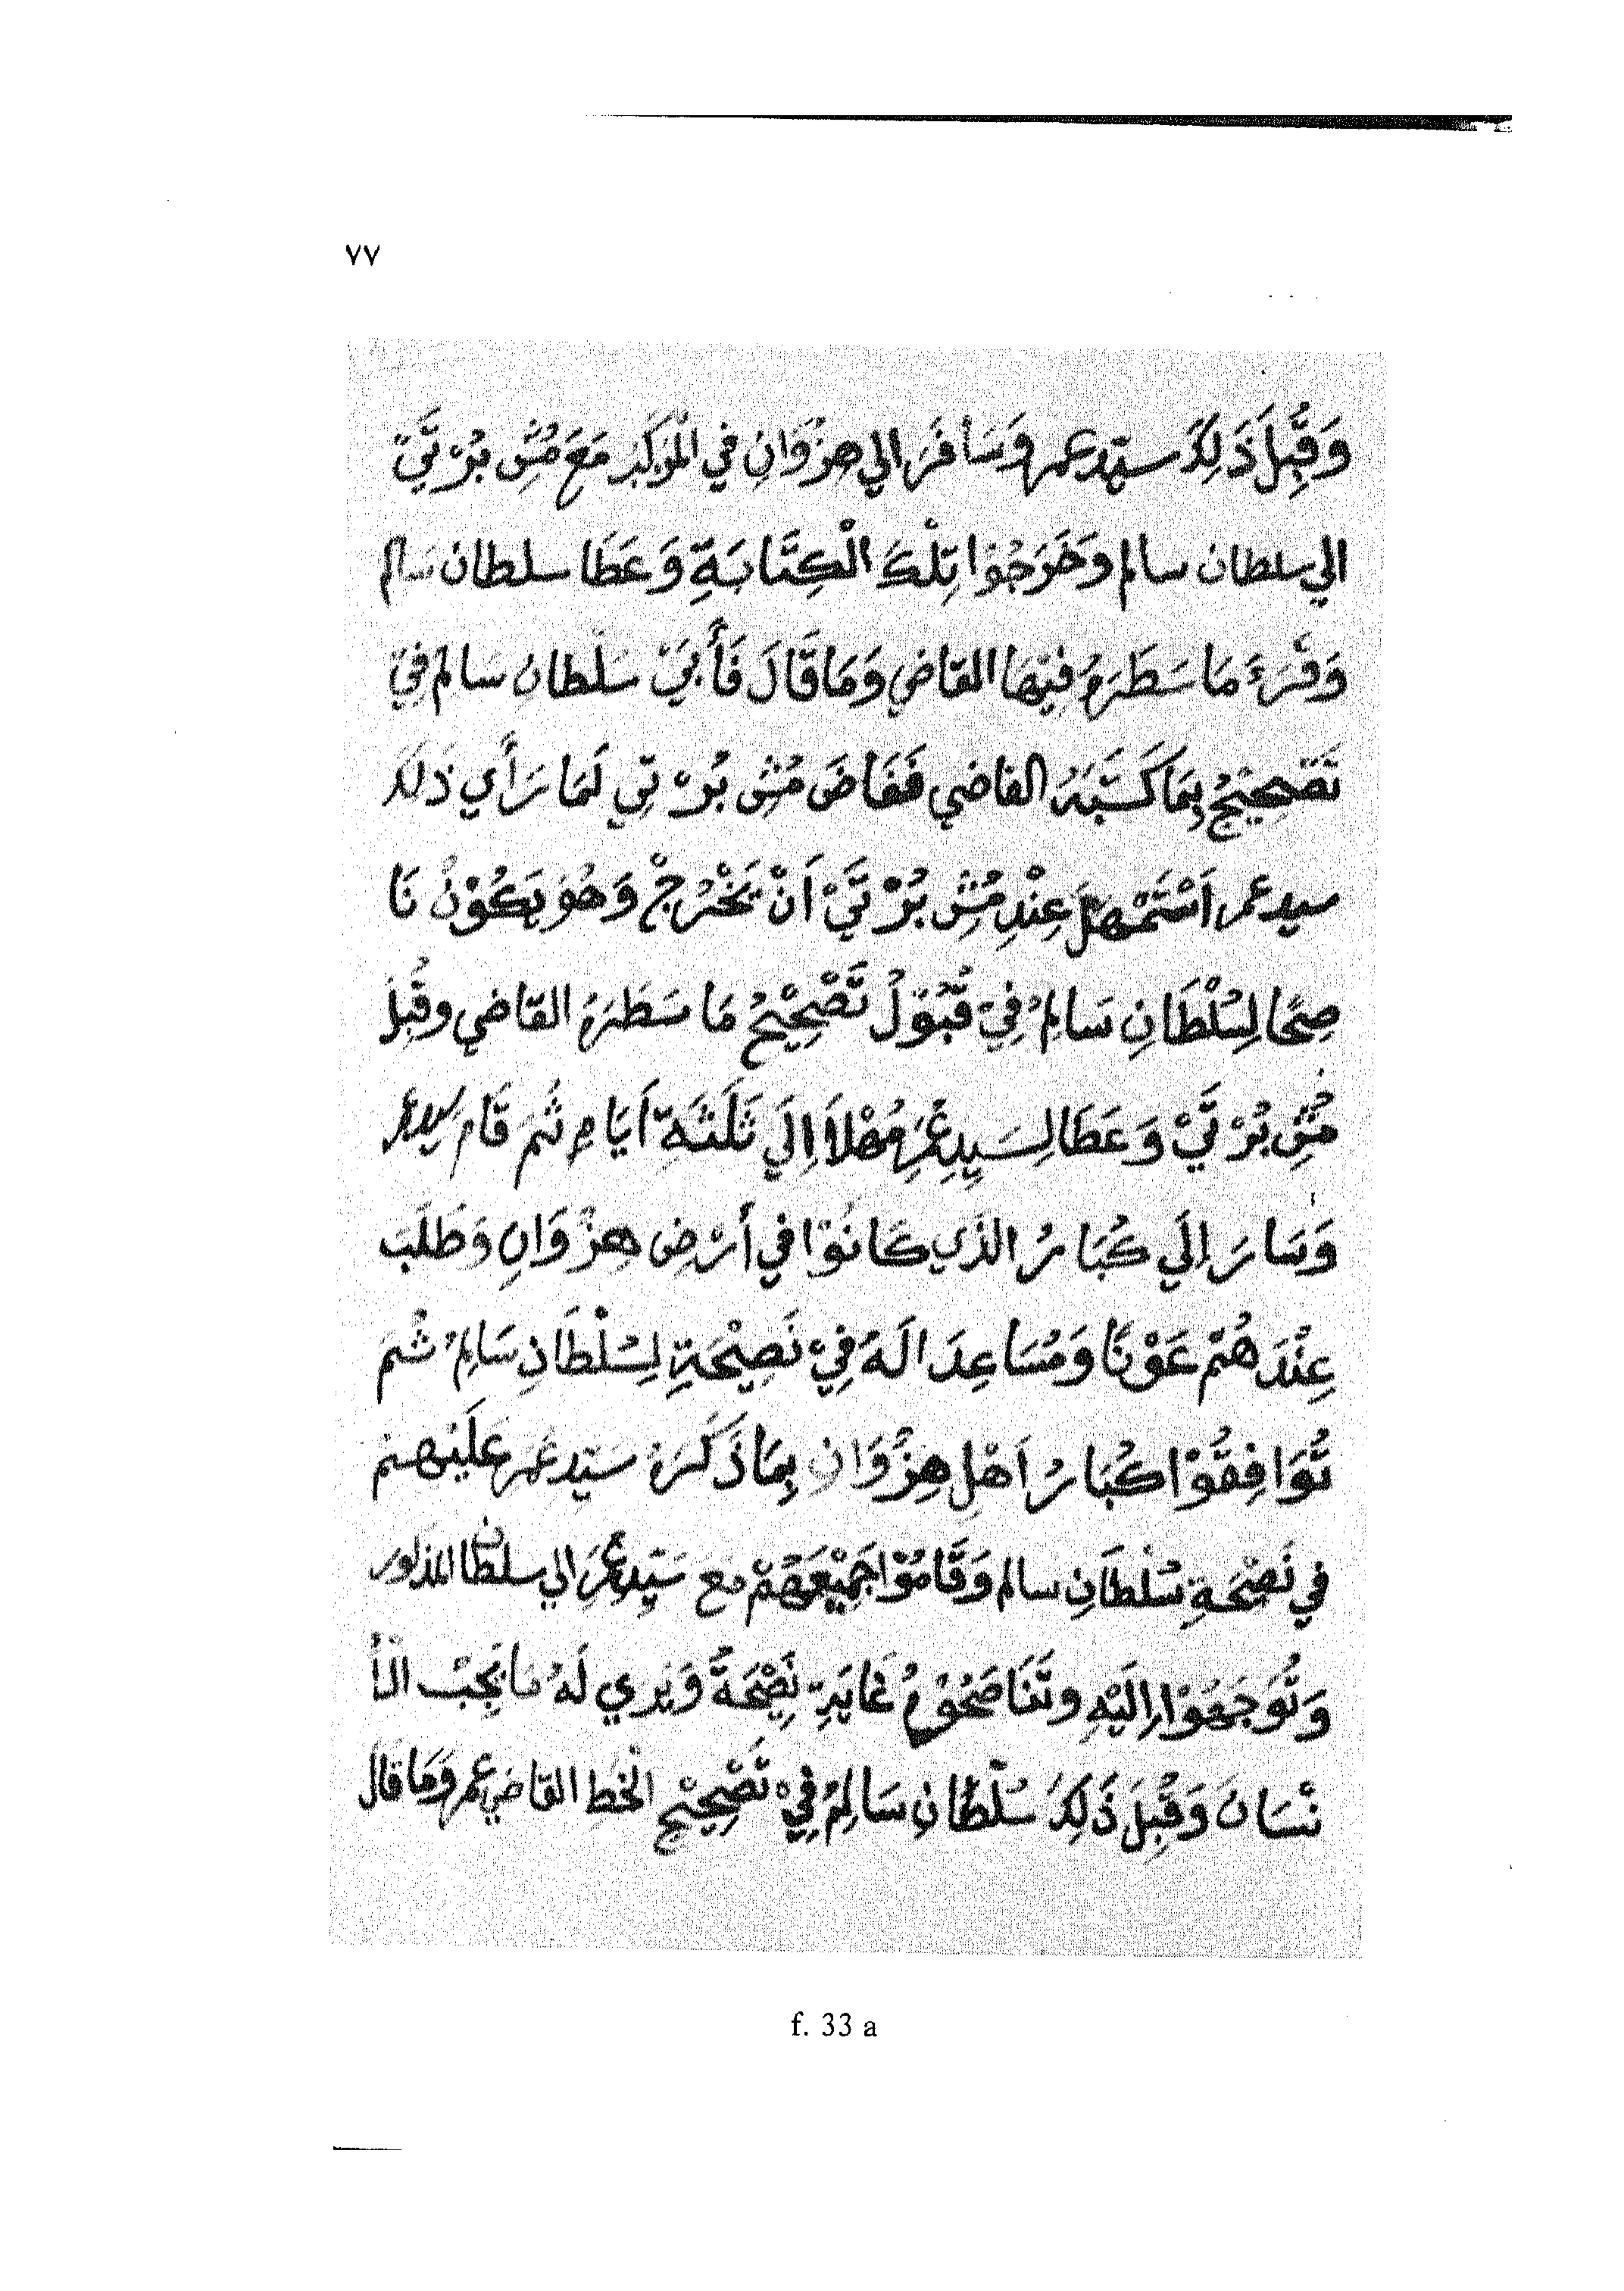 ٧٧
وَقَبِلَ ذَلِكَ سيّد عمر وَسَافَرَ الي هِزْوَانِ فِي الْمَرْكَبِ مَعَ مُشِ بُرْتِيْ
الي سلطان سالم وخَرَجُوْا بِتِلْكَ الْكِتَابَةِ وَعَطَا سلطان سَالم
وَقَرَءَ مَا سَطَرَهُ فِيْهَا القاضِي وَمَا قَالَ فَأَبَيْ سَلْطَان سَالم فِيْ
تَصْحِيْحُ بِمَا كَتَبَهُ القاضي فَفَاضَ مُشِ بُرْتِي لَمَا رَأَي ذَلك
سيد عمر اَسْتَمْهَلَ عِنْدِ مُشِ بُرْتَيْ اَنْ يَخْرُجْ وَهُوَ يَكُوْنُ نَا
صِحًا لِسُلْطَانِ سَالِمُ فِيْ قُبُوْلُ تَصْحِيْحُ مَا سَطَرَهُ القاضي وقَبِلَ
مُشِ بُرْتَيْ وَعَطَا لِسَيِدِ عُمَرِ مُهْلاً اِلَي ثَلَثَةِ اَيَامِ ثُمَ قَام سيد عمر
وَسَارَ اِلَي كُبَارُ الذَي كَانُوْا فِي أَرْضِ هِزْوَانِ وَطَلَبَ
عِنْدَهُمْ عَوْنًا وَمُسَاعِدَا لَهُ فِيْ نَصِيْحَةِ لِسُلْطَانِ سَالِمُ ثُمَ
تُوَافِقُوْا كُبَارُ اَهْلِ هِزْوَانِ بِمَا ذَكَرَهُ سَيّد عُمَر عَلَيْهِمْ
فِي نَصْحَةِ سُلْطَانِ سالم وَقَامُوْا جَمِيْعَهُمْ مع سَيّدِ عُمَرَ الي سلطان المذكور
وَتُوَجَهُوْا اِلَيْهِ وتَنَاصَحُوْهُ غَايَةِ نَصْحَةً وَيَرِي لَهُ مَا يَجِبْ الْأ
نْسَانَ وَقَبِلَ ذَلِكَ سُلْطَانِ سَالِمُ فِيْ تَصْحِيْحِ الْخَط القَاضِي عمر وَمَا قَالَ
f. 33 a